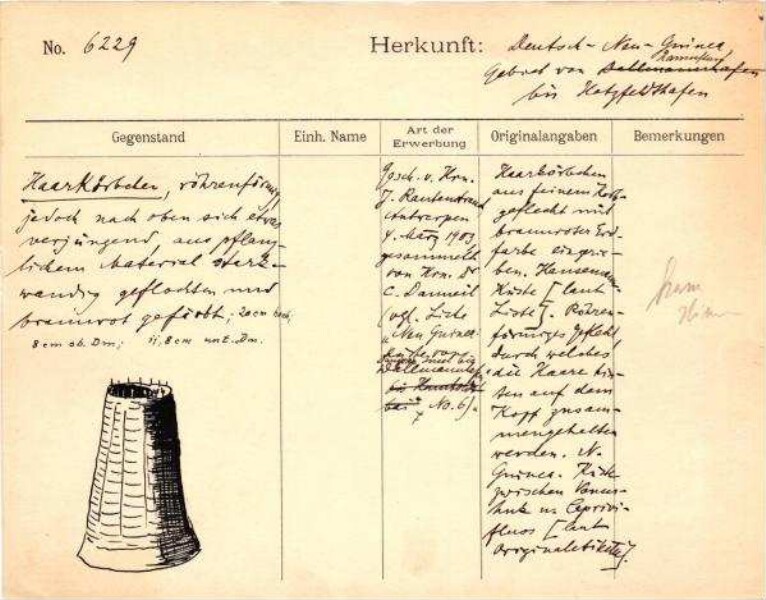 No. 6229
Herkunft: Deutsch-Neu-Guinea,
Gebiet von Dallmannhafen
bis Hatzfeldthafen
Gegenstand
Einh. Name
Art der
Erwerbung
Originalangaben
Bemerkungen
Haarkörbchen, röhrenförmig,
jedoch nach oben sich etwas
verjüngend, aus pflanz-
lichem Material stark-
wandig geflochten und
braunrot gefärbt; 20 cm hoch,
8 cm ob. Dm; 11,8 cm unt. Dm.
Gesch. v. Hrn.
J. Rautenstrauch
Antwerpen
4. März 1903
gesammelt
von Hrn. Dr
C. Danneil
(vgl. Liste
„Neu Guinea-
Küste von
Dallmannhafen
bis
No. 6).
Haarkörbchen
aus feinem
geflecht mit
braunroter Erd-
farbe eingerie-
ben. Hansemann-
Küste [laut
Liste]. Röhren-
förmiges Geflecht,
durch welches
die Haare hin-
ten auf dem
Kopf zusam-
mengehalten
werden. N.
Guinea. Küste
zwischen Venus-
huk u. Caprivi-
fluss [laut
Originaletikette].